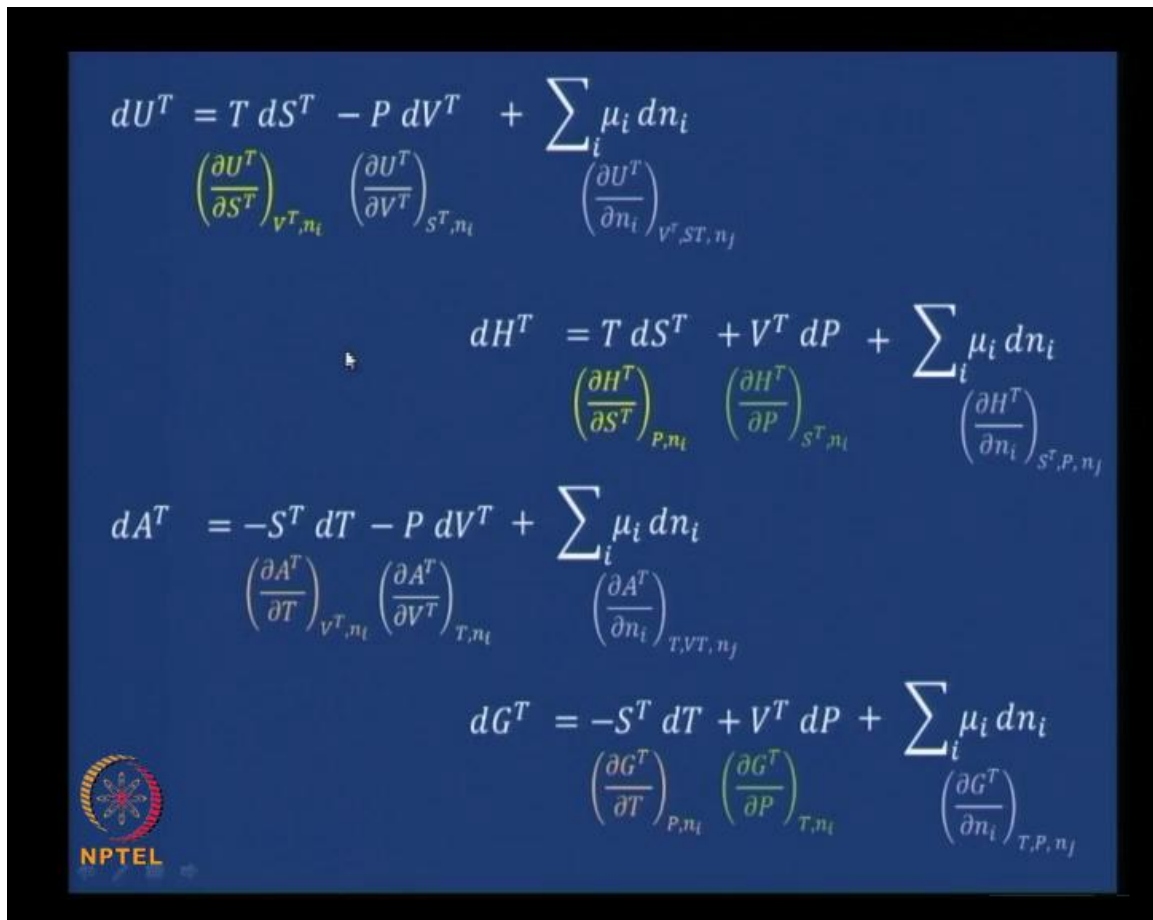 dU^T = T dS^T − P dV^T + ∑_i μ_i dn_i
(∂U^T/∂S^T)_{V^T,n_i} (∂U^T/∂V^T)_{S^T,n_i} (∂U^T/∂n_i)_{V^T,ST,n_j}
dH^T = T dS^T + V^T dP + ∑_i μ_i dn_i
(∂H^T/∂S^T)_{P,n_i} (∂H^T/∂P)_{S^T,n_i} (∂H^T/∂n_i)_{S^T,P,n_j}
dA^T = −S^T dT − P dV^T + ∑_i μ_i dn_i
(∂A^T/∂T)_{V^T,n_i} (∂A^T/∂V^T)_{T,n_i} (∂A^T/∂n_i)_{T,VT,n_j}
dG^T = −S^T dT + V^T dP + ∑_i μ_i dn_i
(∂G^T/∂T)_{P,n_i} (∂G^T/∂P)_{T,n_i} (∂G^T/∂n_i)_{T,P,n_j}
NPTEL